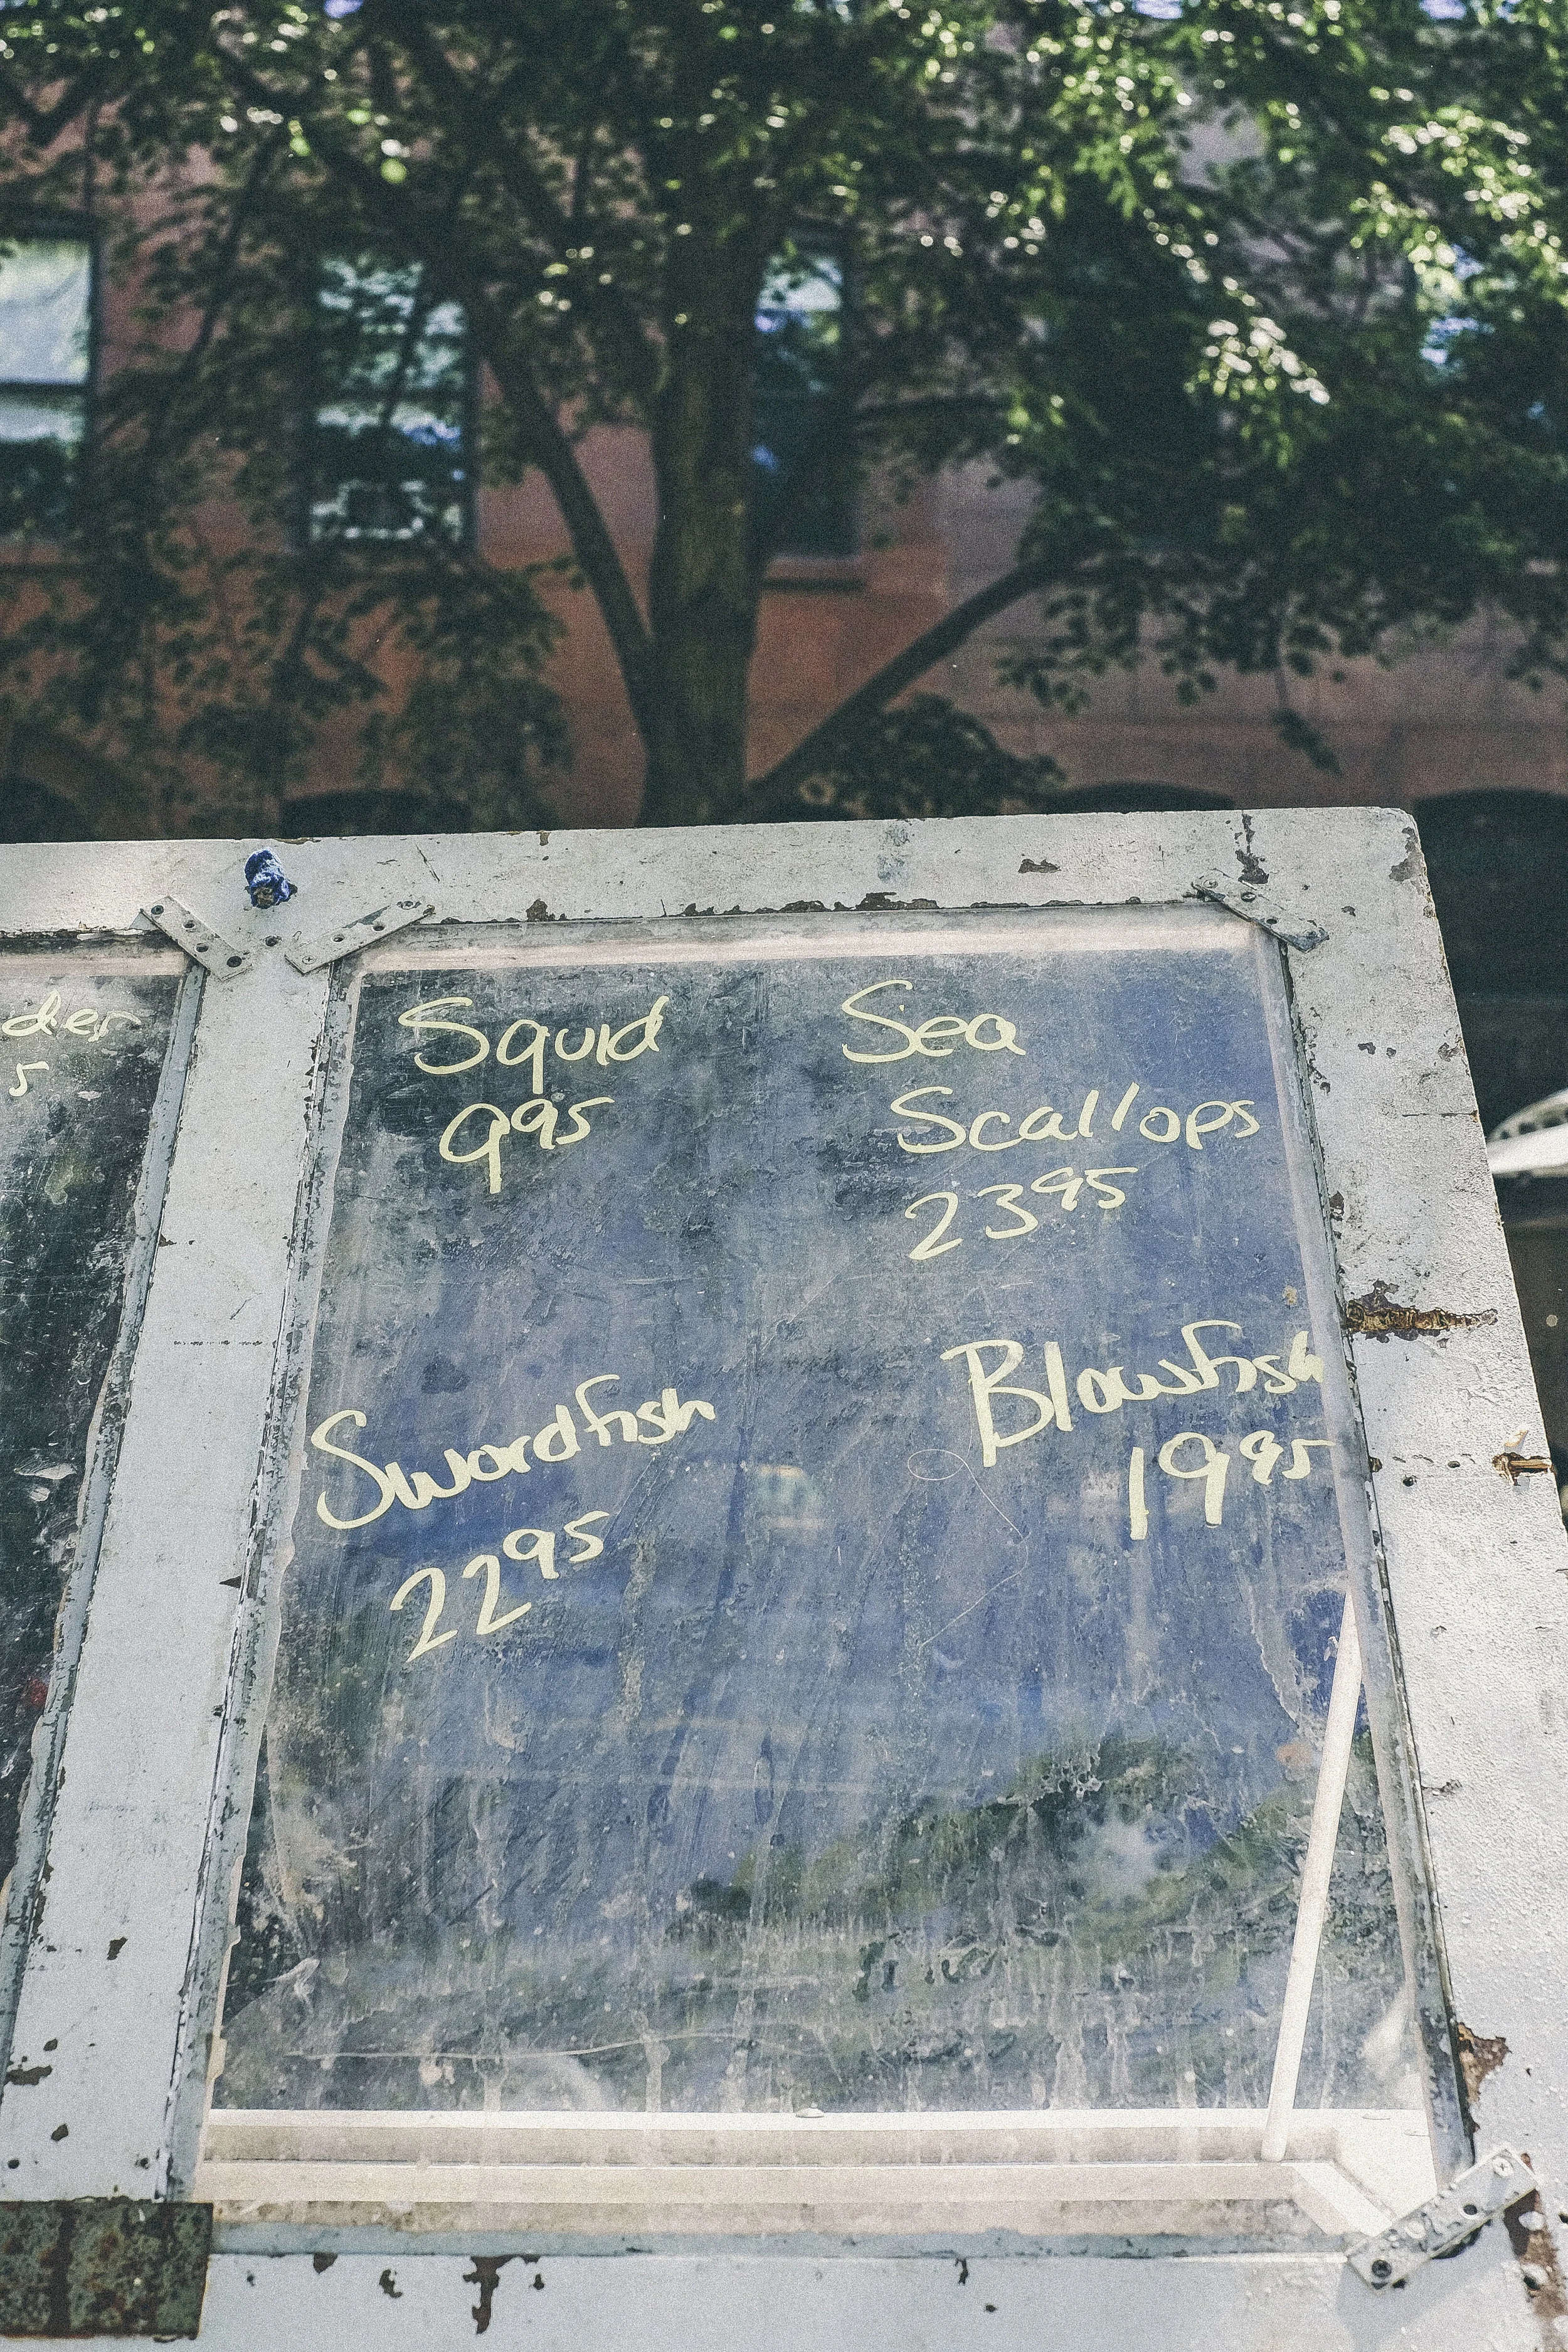 der
5
Squid
995
Sea
Scallops
2395
Swordfish
2295
Blowfish
1995